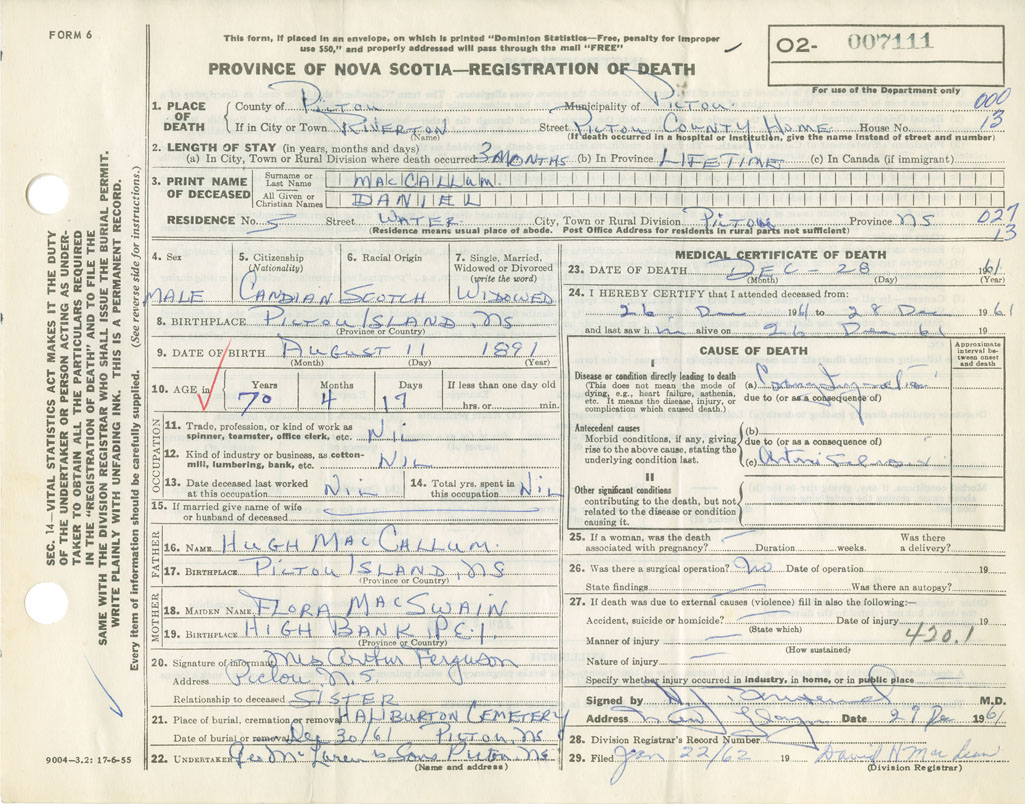 FORM 6
This form, if placed in an envelope, on which is printed "Dominion Statistics—Free, penalty for improper
use $50," and properly addressed will pass through the mail "FREE"
02- 007111
For use of the Department only
PROVINCE OF NOVA SCOTIA—REGISTRATION OF DEATH
000
13
1. PLACE OF DEATH County of Pictou Municipality of Pictou
If in City or Town Riverton Street Pictou County Home House No.
(Name) (If death occurred in a hospital or institution, give the name instead of street and number)
2. LENGTH OF STAY (in years, months and days)
(a) In City, Town or Rural Division where death occurred 3 Months (b) In Province Lifetime (c) In Canada (if immigrant)
3. PRINT NAME OF DECEASED Surname or Last Name MacCallum
All Given or Christian Names Daniel
RESIDENCE No. 5 Street Water City, Town or Rural Division Pictou Province NS
(Residence means usual place of abode. Post Office Address for residents in rural parts not sufficient)
027
13
4. Sex Male
5. Citizenship (Nationality) Candian
6. Racial Origin Scotch
7. Single, Married, Widowed or Divorced (write the word) Widowed
8. BIRTHPLACE Pictou Island, NS
(Province or Country)
9. DATE OF BIRTH August 11 1891
(Month) (Day) (Year)
10. AGE in Years 70 Months 4 Days 17 If less than one day old hrs. or min.
OCCUPATION
11. Trade, profession, or kind of work as spinner, teamster, office clerk, etc. Nil
12. Kind of industry or business, as cotton-mill, lumbering, bank, etc. Nil
13. Date deceased last worked at this occupation Nil
14. Total yrs. spent in this occupation Nil
15. If married give name of wife or husband of deceased
FATHER
16. NAME Hugh MacCallum
17. BIRTHPLACE Pictou Island, NS
(Province or Country)
MOTHER
18. MAIDEN NAME Flora MacSwain
19. BIRTHPLACE High Bank, P.E.I.
(Province or Country)
20. Signature of informant Mrs Arthur Ferguson
Address Pictou N.S.
Relationship to deceased Sister
21. Place of burial, cremation or removal Haliburton Cemetery
Date of burial or removal Dec 30/61 Pictou, NS
22. UNDERTAKER Geo McLaren & Sons Pictou NS
(Name and address)
9004—3.2: 17-6-55
MEDICAL CERTIFICATE OF DEATH
23. DATE OF DEATH Dec - 28 1961
(Month) (Day) (Year)
24. I HEREBY CERTIFY that I attended deceased from:
26 Dec 1961 to 28 Dec 1961
and last saw him alive on 26 Dec 61 19
CAUSE OF DEATH
Approximate interval between onset and death
I
Disease or condition directly leading to death
(This does not mean the mode of dying, e.g., heart failure, asthenia, etc. It means the disease, injury, or complication which caused death.)
(a)
due to (or as a consequence of)
Antecedent causes
Morbid conditions, if any, giving rise to the above cause, stating the underlying condition last.
(b)
due to (or as a consequence of)
(c)
II
Other significant conditions
contributing to the death, but not related to the disease or condition causing it.
25. If a woman, was the death associated with pregnancy? Duration weeks. Was there a delivery?
26. Was there a surgical operation? No Date of operation 19
State findings Was there an autopsy?
27. If death was due to external causes (violence) fill in also the following:—
Accident, suicide or homicide? Date of injury 19
(State which)
Manner of injury 420.1
(How sustained)
Nature of injury
Specify whether injury occurred in industry, in home, or in public place
Signed by M.D.
Address New Glasgow Date 29 Dec 1961
28. Division Registrar's Record Number
29. Filed Jan 22/62 19 David H MacLean
(Division Registrar)
SEC. 14—VITAL STATISTICS ACT MAKES IT THE DUTY
OF THE UNDERTAKER OR PERSON ACTING AS UNDER-
TAKER TO OBTAIN ALL THE PARTICULARS REQUIRED
IN THE "REGISTRATION OF DEATH" AND TO FILE THE
SAME WITH THE DIVISION REGISTRAR WHO SHALL ISSUE THE BURIAL PERMIT.
WRITE PLAINLY WITH UNFADING INK. THIS IS A PERMANENT RECORD.
Every item of information should be carefully supplied. (See reverse side for instructions.)